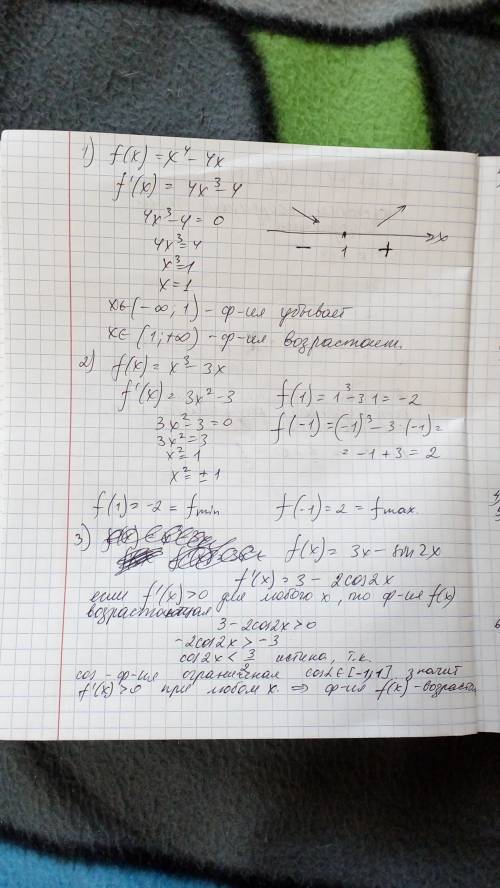 1) f(x) = x⁴ - 4x
f'(x) = 4x³ - 4
4x³ - 4 = 0
4x³ = 4
x³ = 1
x = 1
- 1 + x
x∈(-∞; 1) - ф-ия убывает
x∈(1; +∞) - ф-ия возрастает.
2) f(x) = x³ - 3x
f'(x) = 3x² - 3
3x² - 3 = 0
3x² = 3
x² = 1
x² = ± 1
f(1) = 1³ - 3·1 = -2
f(-1) = (-1)³ - 3·(-1) =
= -1 + 3 = 2
f(1) = -2 = fmin f(-1) = 2 = fmax.
3)
f(x) = 3x - sin2x
f'(x) = 3 - 2cos2x
если f'(x) > 0 для любого x, то ф-ия f(x)
возрастающая
3 - 2cos2x > 0
-2cos2x > -3
cos2x < 3/2 истина, т.к.
cos - ф-ия ограниченая cosL∈[-1;1], значит
f'(x) > 0 при любом x. ⇒ ф-ия f(x) - возраста